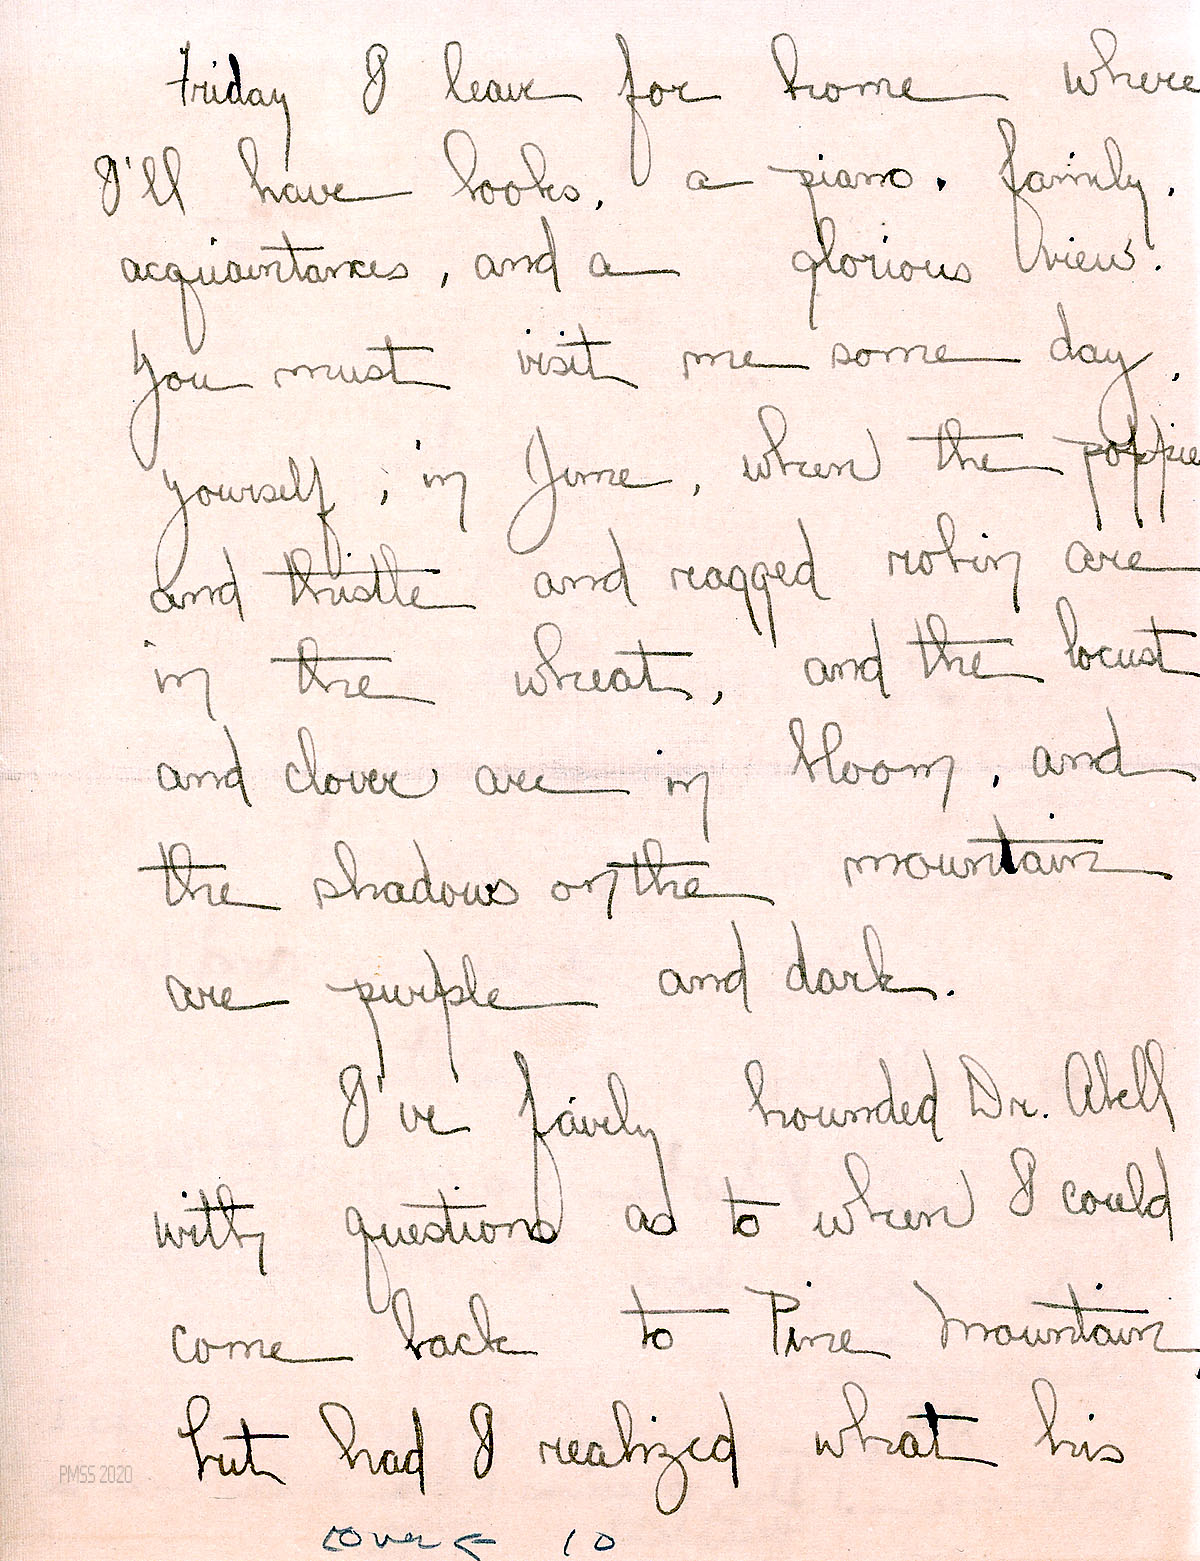 Friday I leave for home where
I'll have books, a piano, family,
acquaintances, and a glorious view.
You must visit me some day,
yourself; in June, when the poppie
and thistle and ragged robin are
in the wheat, and the locust
and clover are in bloom, and
the shadows on the mountain
are purple and dark.
I've fairly hounded Dr. Abell
with questions as to when I could
come back to Pine Mountain,
but had I realized what his
PMSS 2020
over ← 10